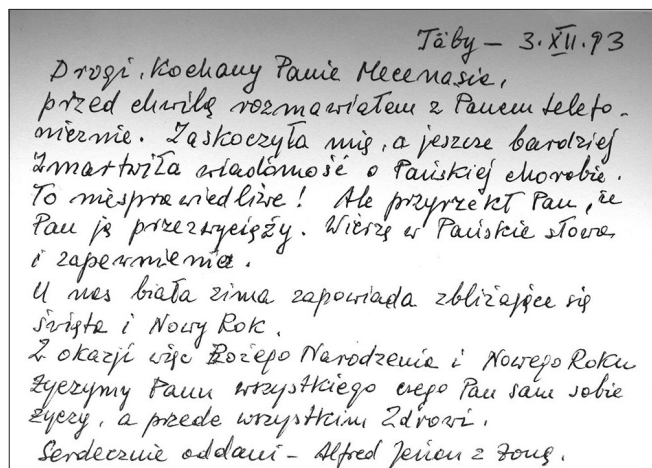 Täby – 3.XII.93
Drogi, Kochany Panie Mecenasie,
przed chwilą rozmawiałem z Panem telefo-
nicznie. Zaskoczyła mię, a jeszcze bardziej
zmartwiła wiadomość o Pańskiej chorobie.
To niesprawiedliwe! Ale przyrzekł Pan, że
Pan ją przezwycięży. Wierzę w Pańskie słowa
i zapewnienia.
U nas biała zima zapowiada zbliżające się
święta i Nowy Rok.
Z okazji więc Bożego Narodzenia i Nowego Roku
życzymy Panu wszystkiego czego Pan sam sobie
życzy, a przede wszystkim Zdrowi.
Serdecznie oddani – Alfred z żoną.